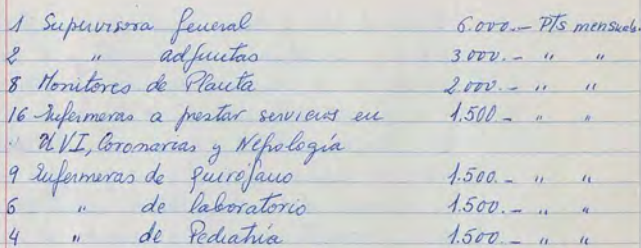 1 Supervisora General 6.000.- Pts mensuals.
2 " adjuntas 3.000.- " "
8 Monitores de Planta 2.000.- " "
16 Enfermeras a prestar servicios en 1.500.- " "
UVI, Coronarias y Nefrología
9 Enfermeras de Quirófano 1.500.- " "
6 " de laboratorio 1.500.- " "
4 " de Pediatría 1.500.- " "